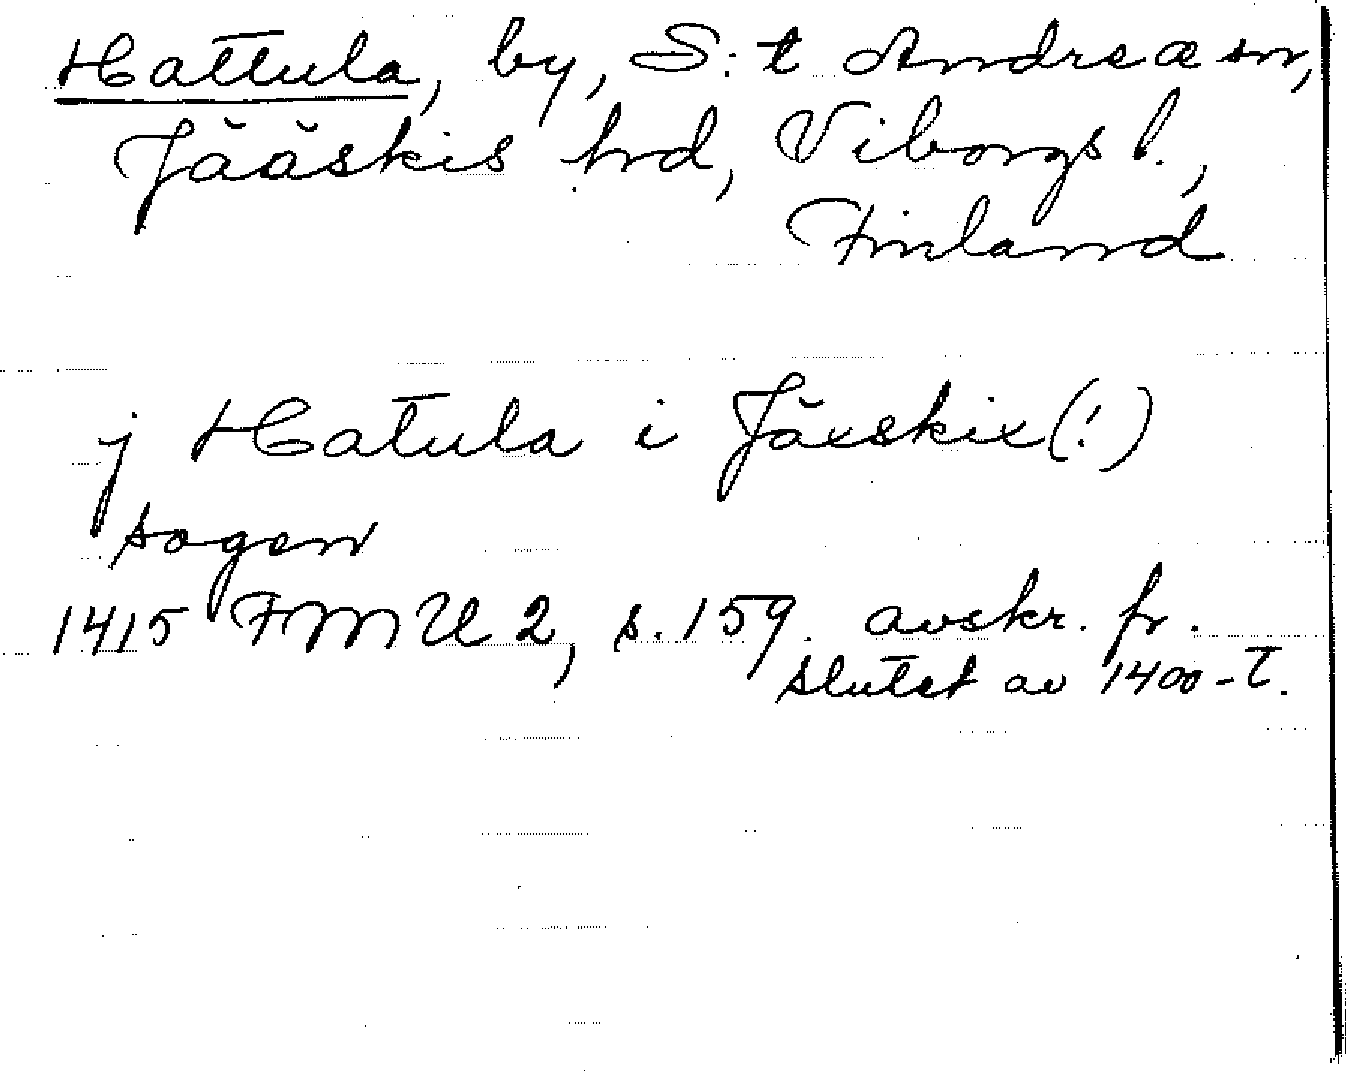 Hattula, by, S:t Andreæ sn,
Jääskis hrd, Viborgs l.,
Finland
j Hatula i Jäxskix(!)
sogen
1415 FMU 2, s. 159. avskr. fr.
slutet av 1400-t.